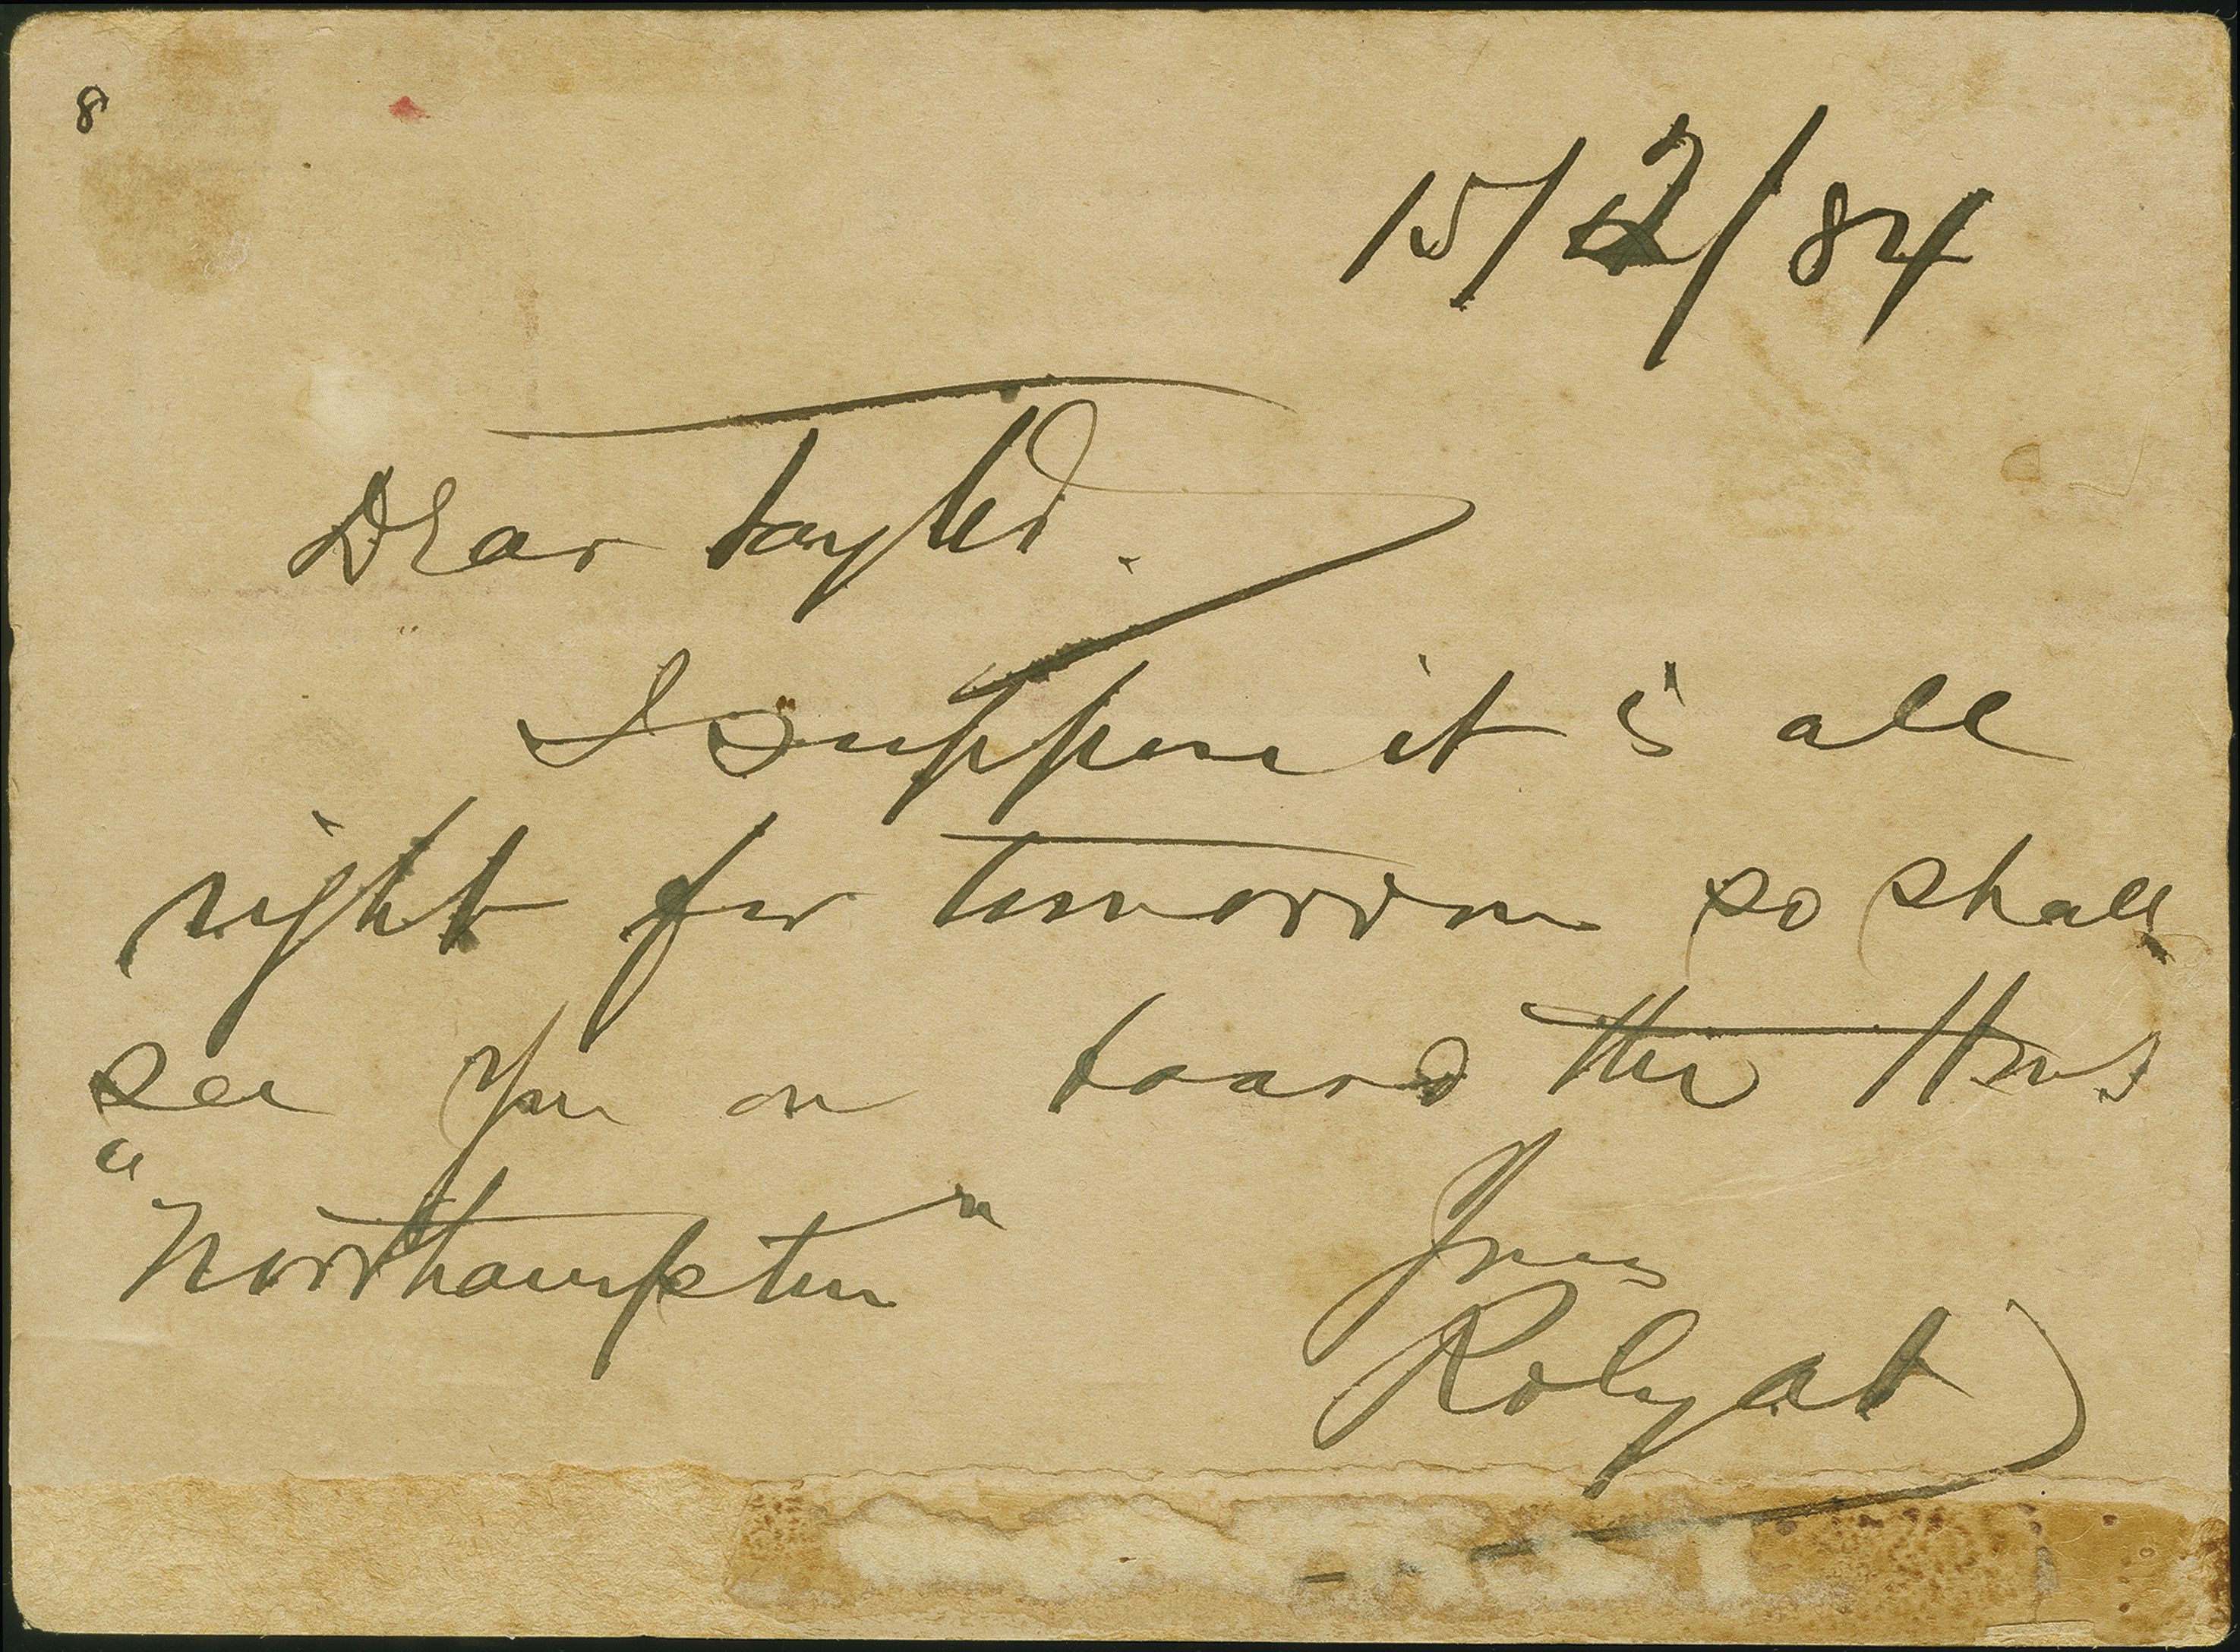 8
15/2/84
Dear
I suppose it is all
right for tomorrow so shall
see you on board the Hms
"Northampton"
Yours
Rolyat